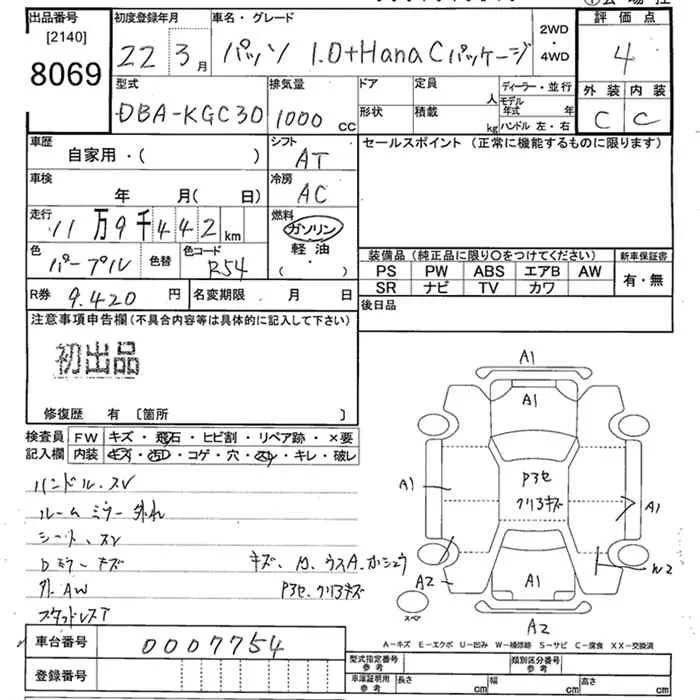 出品番号 初度登録年月 車名・グレード 評価点
[2140] 22 3月 パッソ 1.0+Hana Cパッケージ 2WD・4WD 4
8069 型式 排気量 ドア 定員 人 ディーラー・並行 外装 内装
DBA-KGC30 1000 CC 形状 積載 kg モデル年式 年 ハンドル 左・右 C C
車歴 シフト セールスポイント (正常に機能するものに限ります)
自家用・( ) AT
車検 冷房
年 月( 日) AC
走行 燃料
11万9千442km ガソリン
色 色替 色コード 軽油
パープル R54 ( ・ )
装備品 (純正品に限り○をつけてください) 新車保証書
PS PW ABS エアB AW 有・無
SR ナビ TV カワ
R券 9.420円 名変期限 月 日 後日品
注意事項申告欄 (不具合内容等は具体的に記入して下さい)
初出品
修復歴 有 [箇所 ]
検査員 FW キズ・飛石・ヒビ割・リペア跡・×要
記入欄 内装 キズ・汚レ・コゲ・穴・スレ・キレ・破レ
ハンドル.スレ
ルームミラー外れ
シート.スレ
Dミラーキズ キズ.凹.ウスA.ホシュウ
外.AW P3セ.クリアキズ
スタッドレスT
A1
A1
P3セ
クリアキズ
A1 A1
A2 A1 W2
スペア A2
A-キズ E-エクボ U-凹み W-補修跡 S-サビ C-腐食 XX-交換済
車台番号 0007754
登録番号
型式指定番号 参考 類別区分番号 参考
車庫証明用 参考 長さ cm 幅 cm 高さ cm